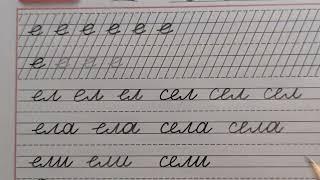 е е е е е е
е е е е
ел ел ел сел сел сел
ела ела села села
ели ели сели